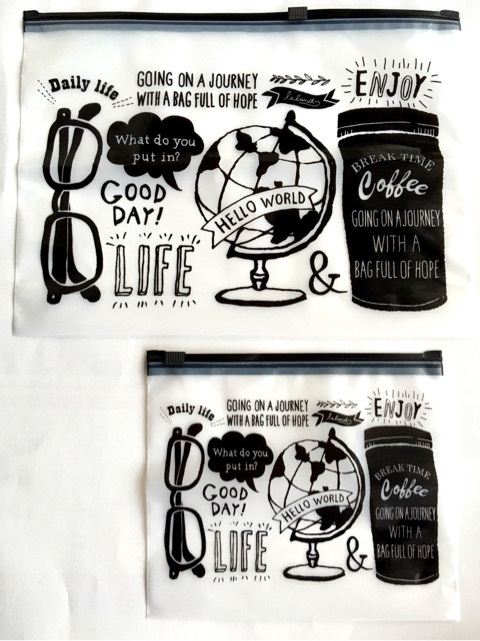 Daily life
GOING ON A JOURNEY
WITH A BAG FULL OF HOPE
Island
ENJOY
What do you
put in?
GOOD
DAY!
LIFE
HELLO WORLD
&
BREAK TIME
Coffee
GOING ON A JOURNEY
WITH A
BAG FULL OF HOPE
Daily life
GOING ON A JOURNEY
WITH A BAG FULL OF HOPE
Island
ENJOY
What do you
put in?
GOOD
DAY!
LIFE
HELLO WORLD
&
BREAK TIME
Coffee
GOING ON A JOURNEY
WITH A
BAG FULL OF HOPE